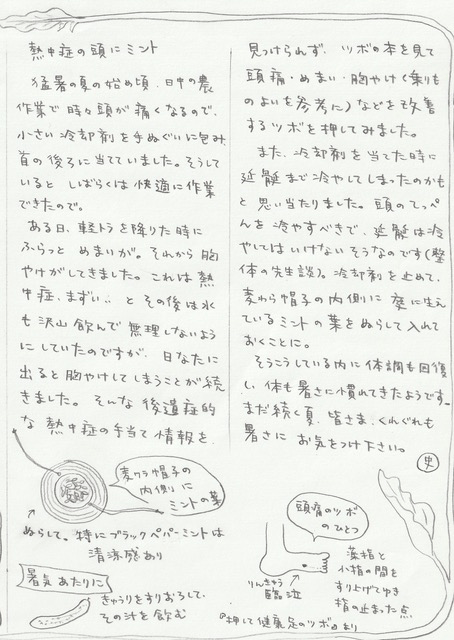 熱中症の頭にミント
猛暑の夏の始め頃、日中の農
作業で時々頭が痛くなるので、
小さい冷却剤を手ぬぐいに包み
首の後ろに当てていました。そうして
いると しばらくは快適に作業
できたので。
ある日、軽トラを降りた時に
ふらっと めまいが。それから胸
やけがしてきました。これは熱
中症、まずい‥ と その後は水
も沢山飲んで無理しないよう
にしていたのですが、日なたに
出ると胸やけしてしまうことが続
きました。そんな後遺症的
な熱中症の手当て情報を
見つけられず、ツボの本を見て
頭痛・めまい・胸やけ(乗りも
のよいを参考に)などを改善
するツボを押してみました。
また、冷却剤を当てた時に
延髄まで冷やしてしまったのかも
と思い当たりました。頭のてっぺ
んを冷やすべきで、延髄は冷
やしてはいけないそうなのです(整
体の先生談)。冷却剤を止めて、
麦わら帽子の内側に庭に生え
ているミントの葉をぬらして入れて
おくことに。
そうこうしている内に体調も回復
し、体も暑さに慣れてきたようです。
まだ続く夏、皆さま、くれぐれも
暑さに お気をつけ下さい。
史
麦ワラ帽子の
内側に
ミントの葉
ぬらして。特にブラックペパーミントは
清涼感あり
暑気あたりに
きゅうりをすりおろして、
その汁を飲む
頭痛のツボ
のひとつ
りんきゅう
臨泣
薬指と
小指の間を
すり上げてゆき
指の止まった点
『押して健康足のツボ』より